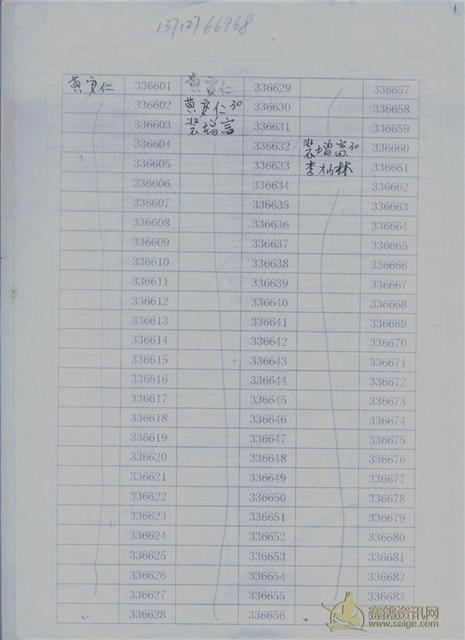 13712766968
黄安仁 336601 黄安仁 336629 336657
336602 黄安仁30 336630 336658
336603 裴增富 336631 336659
336604 336632 裴增富30 336660
336605 336633 李灿林 336661
336606 336634 336662
336607 336635 336663
336608 336636 336664
336609 336637 336665
336610 336638 336666
336611 336639 336667
336612 336640 336668
336613 336641 336669
336614 336642 336670
336615 336643 336671
336616 336644 336672
336617 336645 336673
336618 336646 336674
336619 336647 336675
336620 336648 336676
336621 336649 336677
336622 336650 336678
336623 336651 336679
336624 336652 336680
336625 336653 336681
336626 336654 336682
336627 336655 336683
336628 336656
赛鸽资讯网
www.saige.com